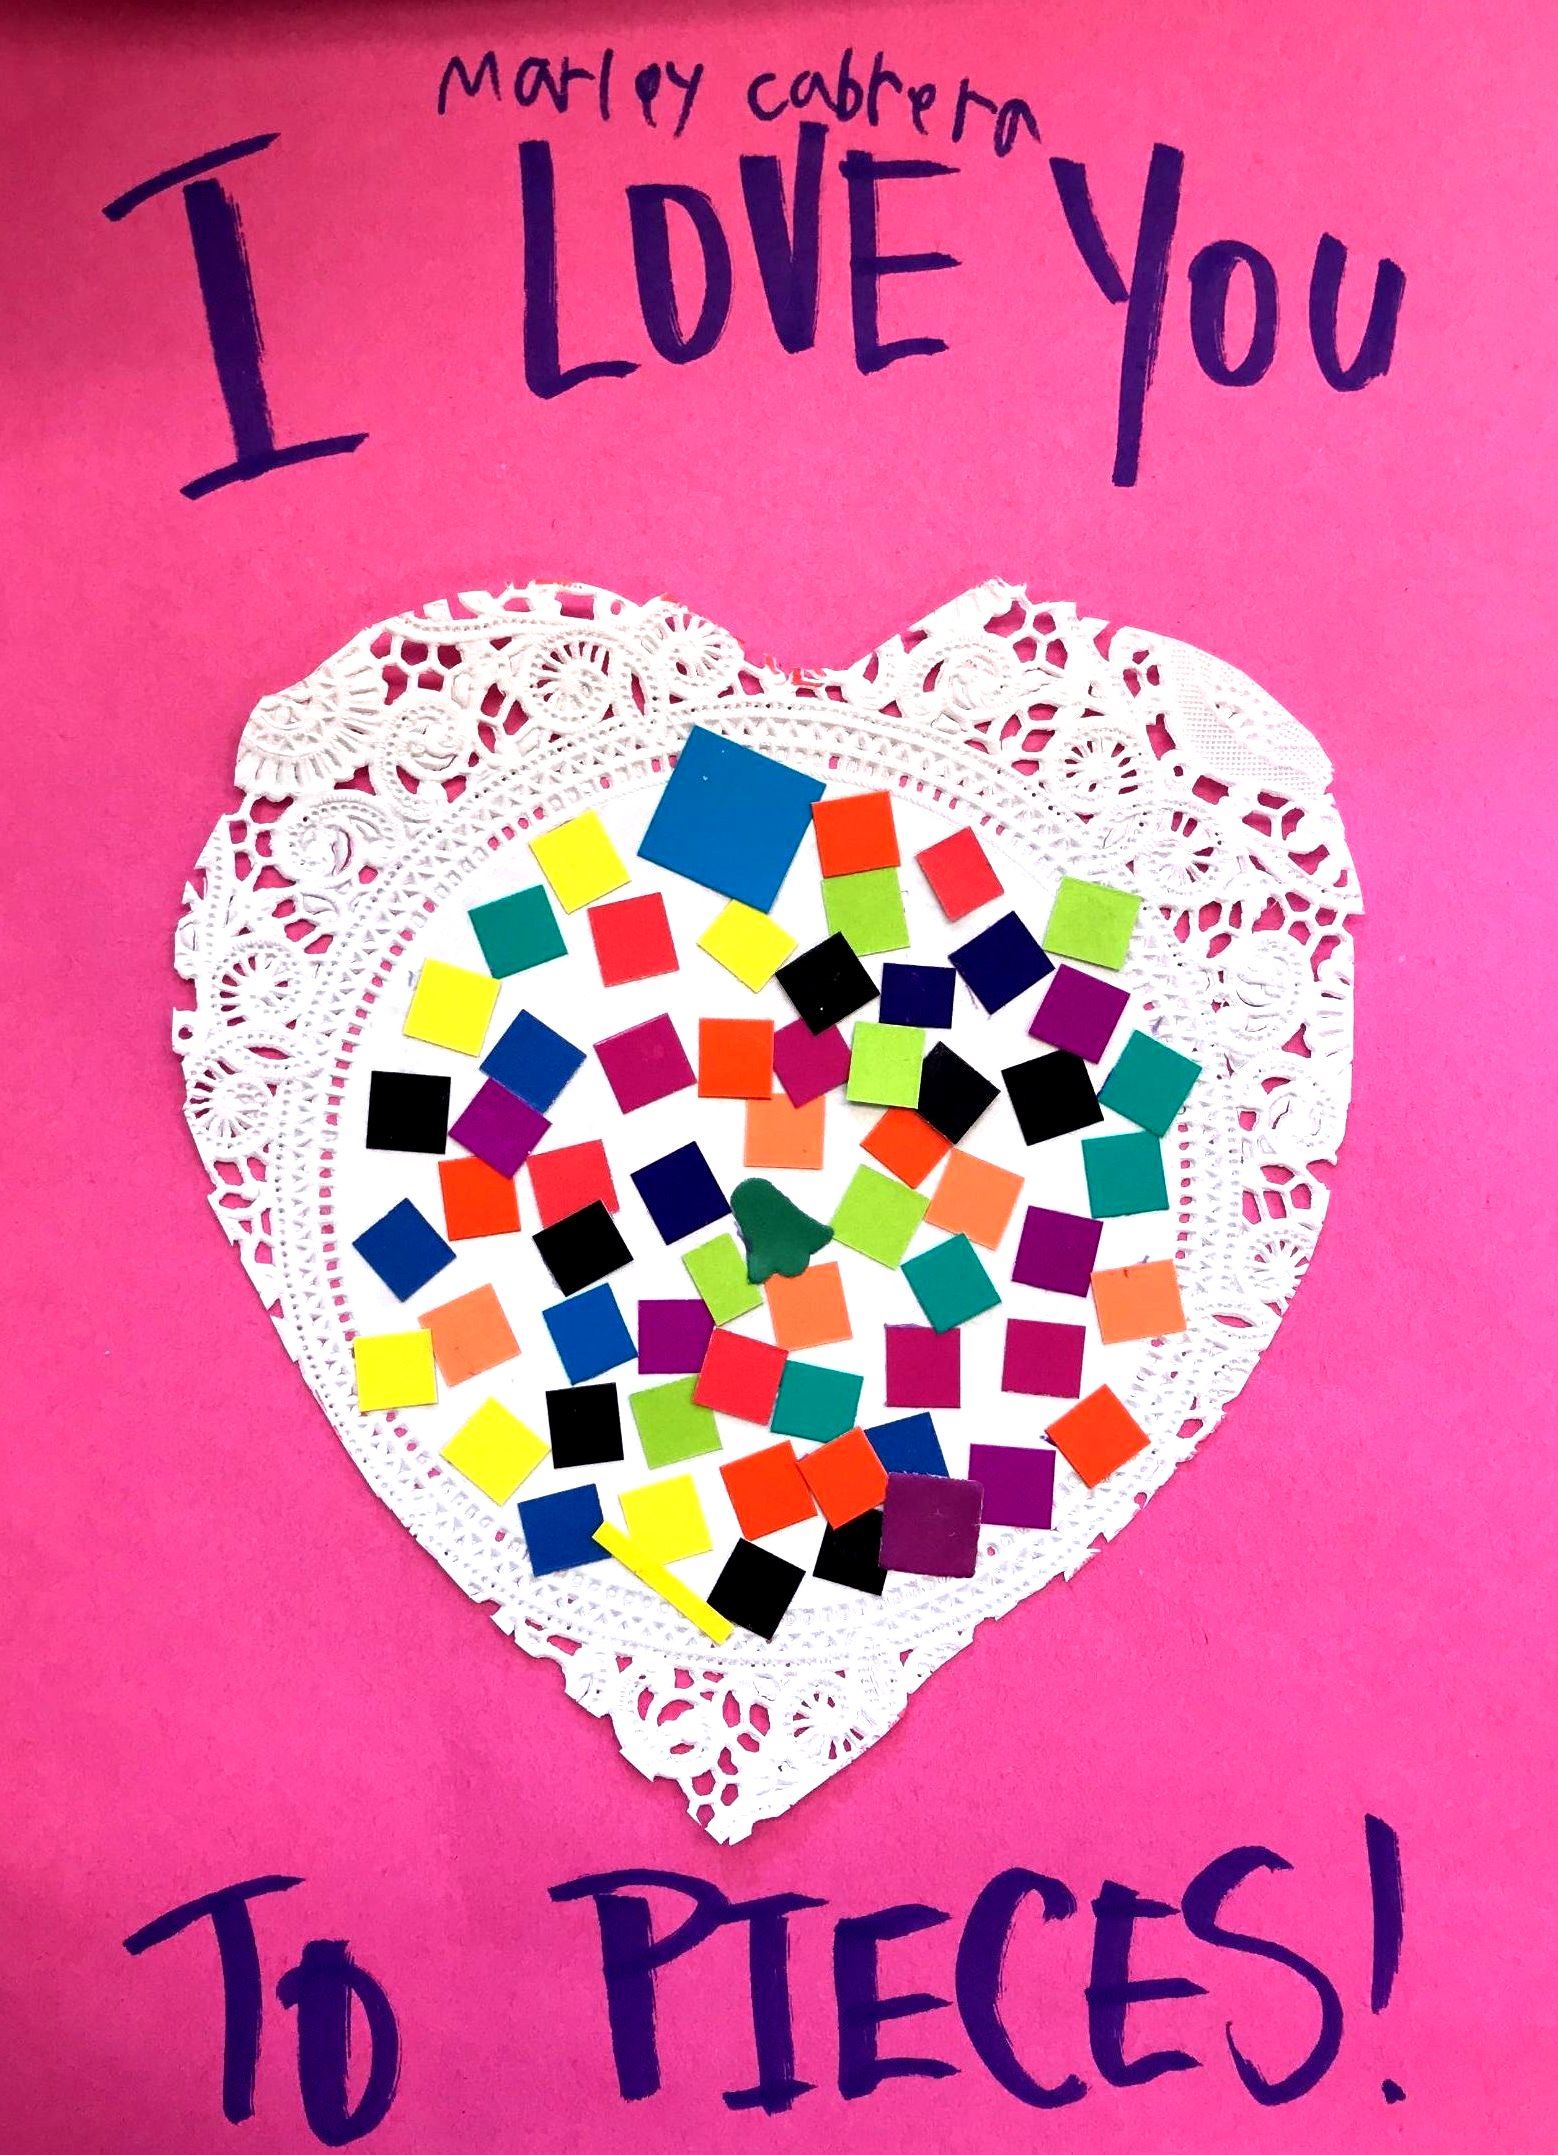 Marley cabrera
I LOVE YOU
TO PIECES!